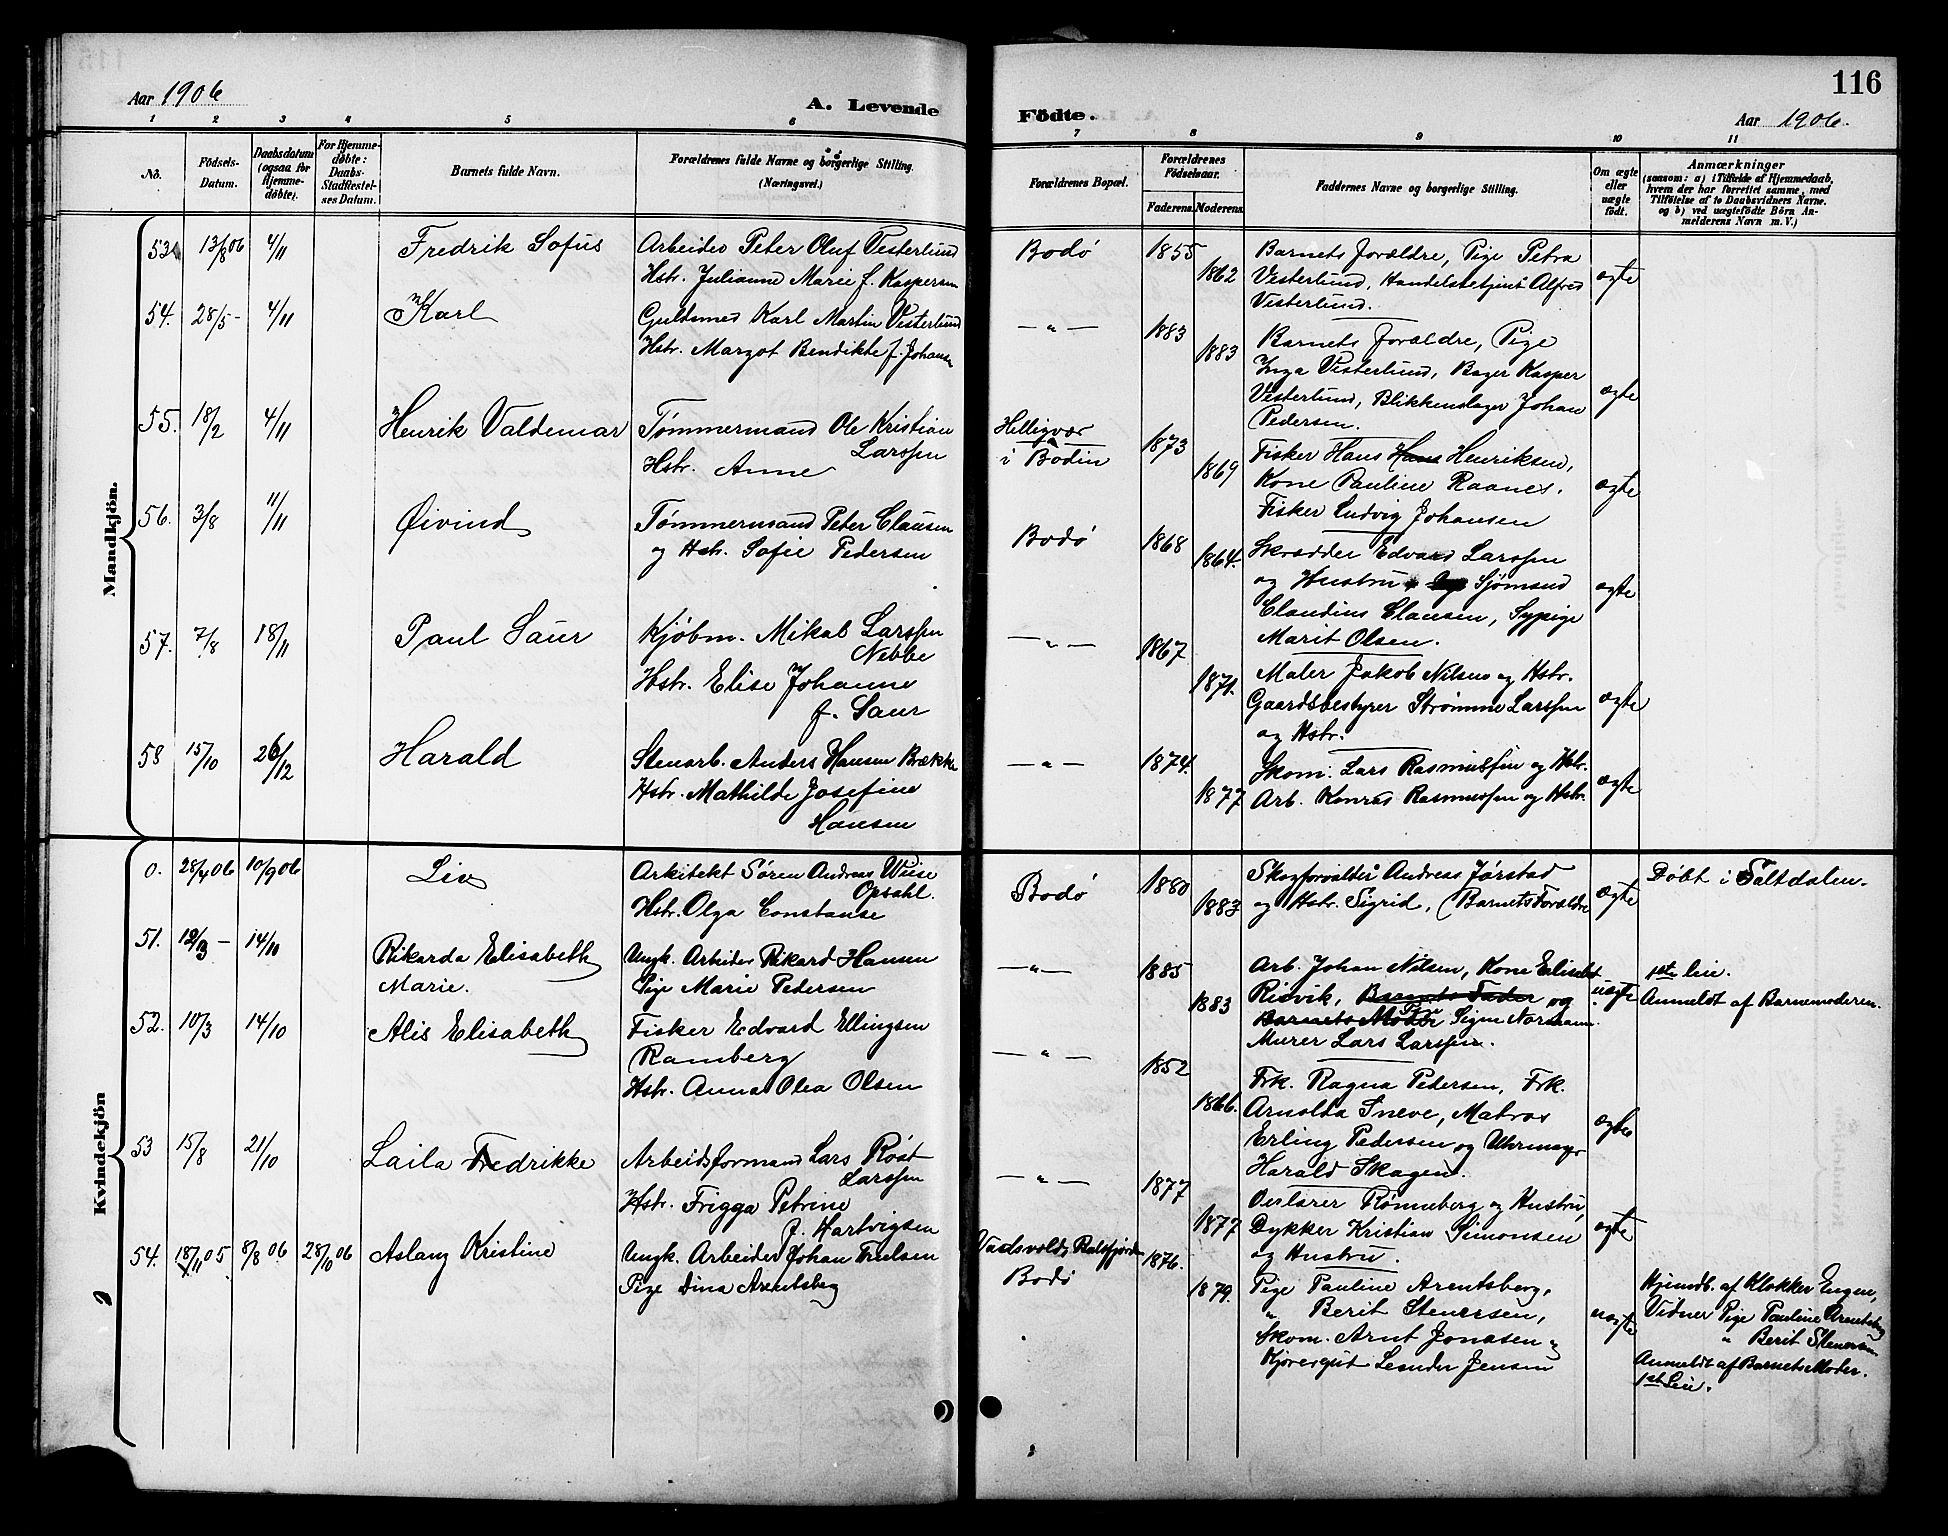 116
Aar 1906
A. Levende
Födte.
Aar 1906.
1 2 3 4 5 6 7 8 9 10 11
No.
Födsels-Datum.
Daabsdatum (ogsaa for Hjemme-döbte).
For Hjemme-döbte: Daabs-Stadfæstel-ses Datum.
Barnets fulde Navn.
Forældrenes fulde Navne og borgerlige Stilling. (Næringsvei.)
Forældrenes Bopæl.
Forældrenes Födselsaar.
Faderens. Moderens.
Faddernes Navne og borgerlige Stilling.
Om ægte eller uægte födt.
Anmærkninger
(saasom: a) i Tilfælde af Hjemmedaab, hvem der har forrettet samme, med Tilföielse af to Daabsvidners Navne. og b) ved uægtefödte Börn Anmelderens Navn m. V.)
Mandkjön.
53. 13/8 06 4/11 Fredrik Sofus
Arbeider Peter Oluf Vesterlund
Hstr. Julianne Marie f. Kaspersen
Bodø 1855 1862
Barnets Forældre, Pige Petra
Vesterlund, Handelsbetjent Alfred
Vesterlund.
ægte
54. 28/5 - 4/11 Karl
Guldsmed Karl Martin Vesterlund
Hstr. Margot Bendikte f. Johansen
— " — 1883 1883
Barnets Forældre, Pige
Inga Vesterlund, Bager Kasper
Vesterlund, Blikkenslager Johan
Pedersen.
ægte
55. 18/2 4/11 Henrik Valdemar
Tømmermand Ole Kristian
Larssen
Hstr. Anne
Helligvær
i Bodin 1873 1869
Fisker Hans Henriksen,
Kone Pauline Raanes.
Fisker Ludvig Johansen
ægte
56. 3/8 11/11 Øivind
Tømmermand Peter Clausen
og Hstr. Sofie Pedersen
Bodø 1868 1864.
Skrædder Edvard Larssen
og Hustru, Sjømand
Claudius Clausen, Sypige
Marit Olsen.
ægte
57. 7/8 18/11 Paul Saur
Kjøbm. Mikal Larssen
Nebbe
Hstr. Elise Johanne
f. Saur
— " — 1867 1871.
Maler Jakob Nilsen og Hstr.
Gaardsbestyrer Strømme Larssen
og Hstr.
ægte
58 15/10 26/12 Harald
Stenarb. Anders Hansen Brække
Hstr. Mathilde Josefine
Hansen
— " — 1874. 1877
Skom. Lars Rasmussen og Hstr.
Arb. Konrad Rasmussen og Hstr.
ægte
Kvindekjön
0. 28/4 06 10/9 06 Liv
Arkitekt Søren Andreas Wiese
Opsahl.
Hstr. Olga Constanse
Bodø 1880 1883
Skogforvalter Andreas Jørstad
og Hstr. Sigrid, (Barnets Forældre
ægte
Døbt i Saltdalen.
51. 12/3 - 14/10 Rikarda Elisabeth
Marie.
Ungk. Arbeider Rikard Hansen
Pige Marie Pedersen
— " — 1885 1883
Arb. Johan Nilsen, Kone Elisabet
Risvik, Barnets Fader og
Barnets Moder Signe Normann.
Murer Lars Larssen.
uægte
1ste leie.
Anmeldt af Barnemoderen.
52. 10/3 14/10 Alis Elisabeth
Fisker Edvard Ellingsen
Ramberg
Hstr. Anna Olea Olsen
— " — 1852 1866.
Frk. Ragna Pedersen, Frk.
Arnolda Sneve, Matros
Erling Pedersen og Uhrmager
Harald Skagen.
ægte
53 15/8 21/10 Laila Fredrikke
Arbeidsformand Lars Røst
Larssen
Hstr. Frigga Petrine
f. Hartvigsen
— " — 1877 1877
Oerlærer Rønneberg og Hustru,
Dykker Kristian Simonsen
og Hustru.
ægte
54. 18/11 05 8/8 06 28/10 06 Aslaug Kristine
Ungk. Arbeider Johan Trulsen
Pige Dina Arentsberg
Bodø 1876. 1879.
Pige Pauline Arentsberg,
" Berit Stenersen,
Skom. Arnt Jonasen og
Kjøregut Leander Jensen
uægte
Hjemdb. af Klokker Engen,
Vidner Pige Pauline Arentsberg
" Berit Stenersen
Anmeldt af Barnets Moder.
1ste Leie.